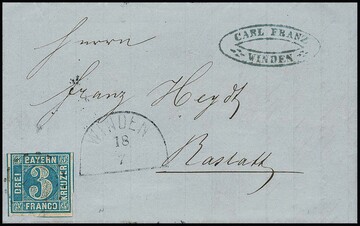 CARL FRANZ
WINDEN
Herrn
Franz Heydt
WINDEN
18
7
Rastatt
BAYERN
DREI
3
KREUZER
FRANCO